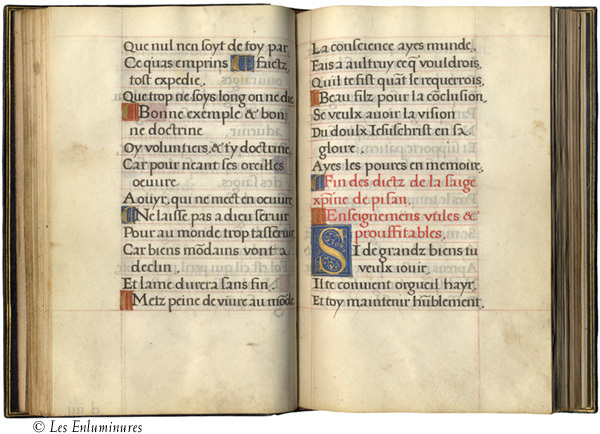 Que nul nen soyt de toy par
Ce quas emprins faictz
tost expedie.
Que trop ne soys long on ne die
Bonne exemple & bon
ne doctrine
Oy voluntiers & ty doctrine
Car pour neant ses oreilles
oeuure
A ouyr, qui ne mect en oeuure
Ne laisse pas a dieu seruir
Pour au monde trop tasseruir
Car biens mōdains vont a
declin.
Et lame durera sans fin.
Metz peine de viure au mōde
La conscience ayes munde.
Fais a aultruy ce q̄ vouldrois
Qu'il te fist quāt le requerrois.
Beau filz pour la cōclusion
Se veulx auoir la vision
Du doulx Iesuschrist en sa
gloire.
Ayes les poures en memoire.
Fin des dictz de la saige
xp̄ine de pisan.
Enseignemens vtiles &
prouffitables.
SI de grandz biens tu
veulx iouir
Il te cōuient orgueil hayr
Et toy maintenir hūblement
© Les Enluminures